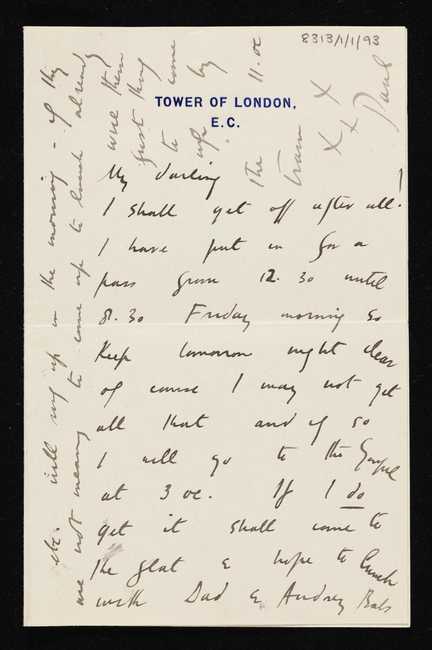 8313/1/1/93
TOWER OF LONDON,
E.C.
My darling
I shall get off after all!
I have put in for a
pass from 12.30 until
8.30 Friday morning so
Keep tomorrow night clear
of course I may not get
all that and if so
I will go to the
at 3 oc. If I do
get it shall come to
the flat & hope to lunch
with Dad & Audrey Babs
etc. will ring up in the morning - if they
are not meaning to come up to lunch already
wire them
just they
to come
up by
the 11.0c
train
X X X
Paul